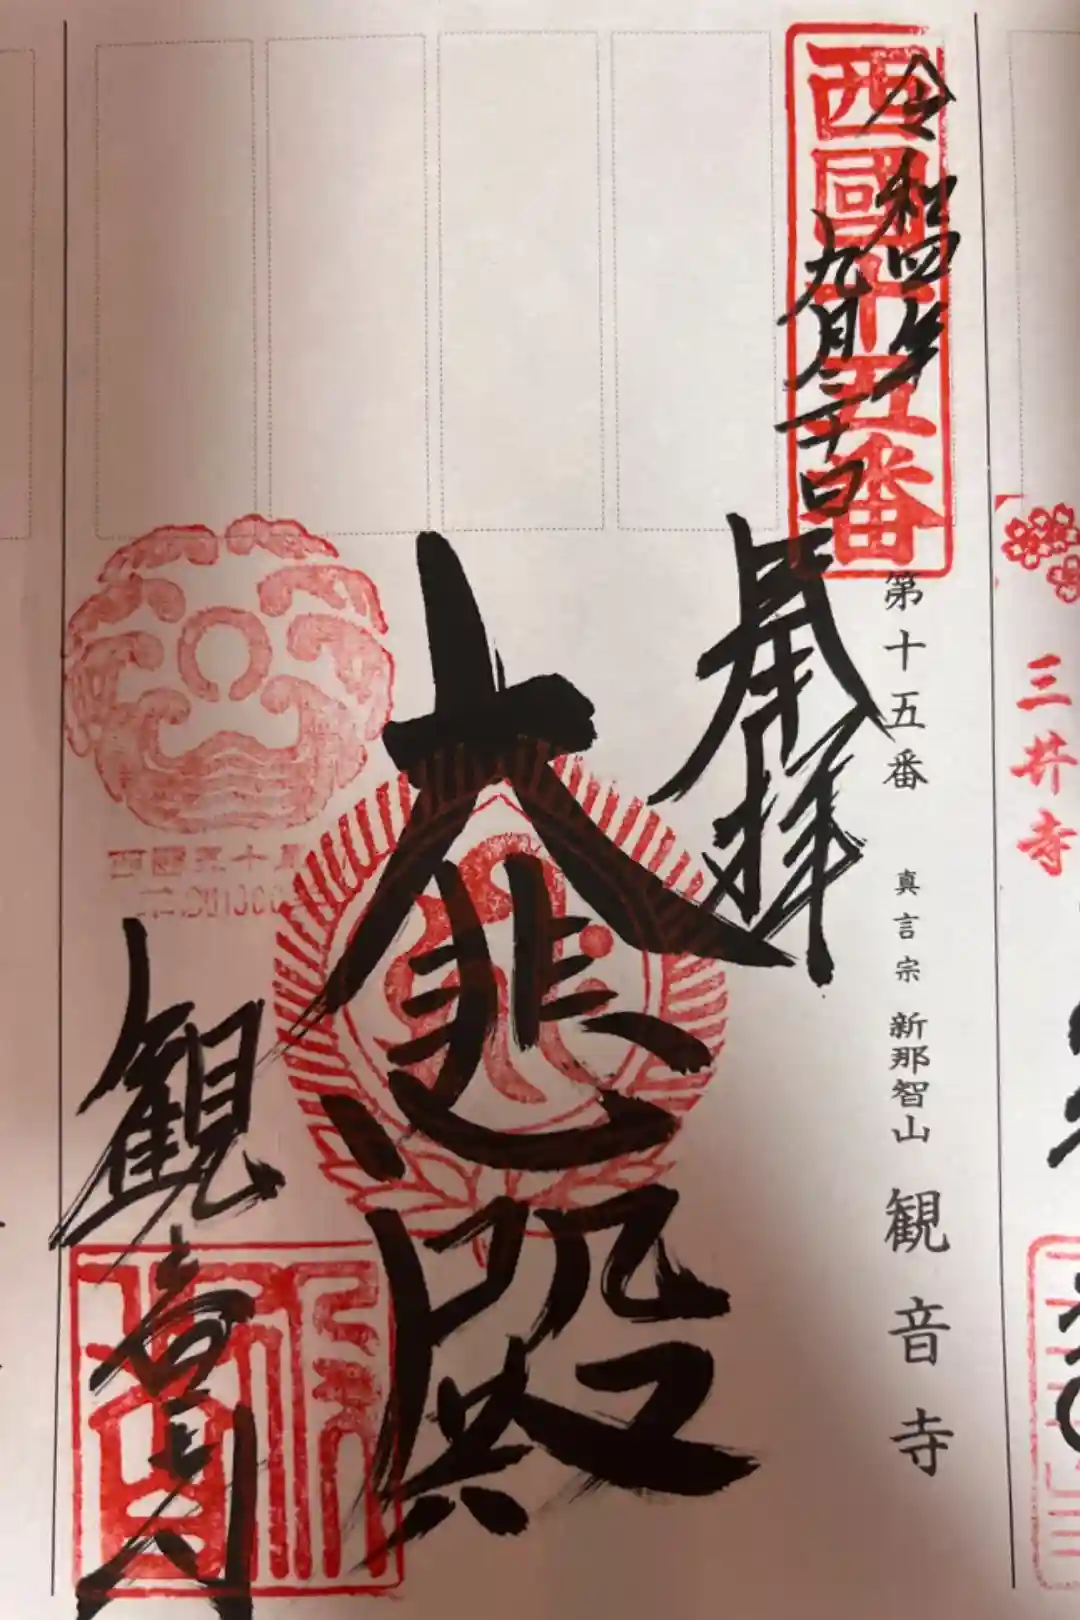 西國十五番
令和四年
九月二十日
奉拝
第十五番 真言宗 新那智山 観音寺
大悲殿
観音寺
三井寺